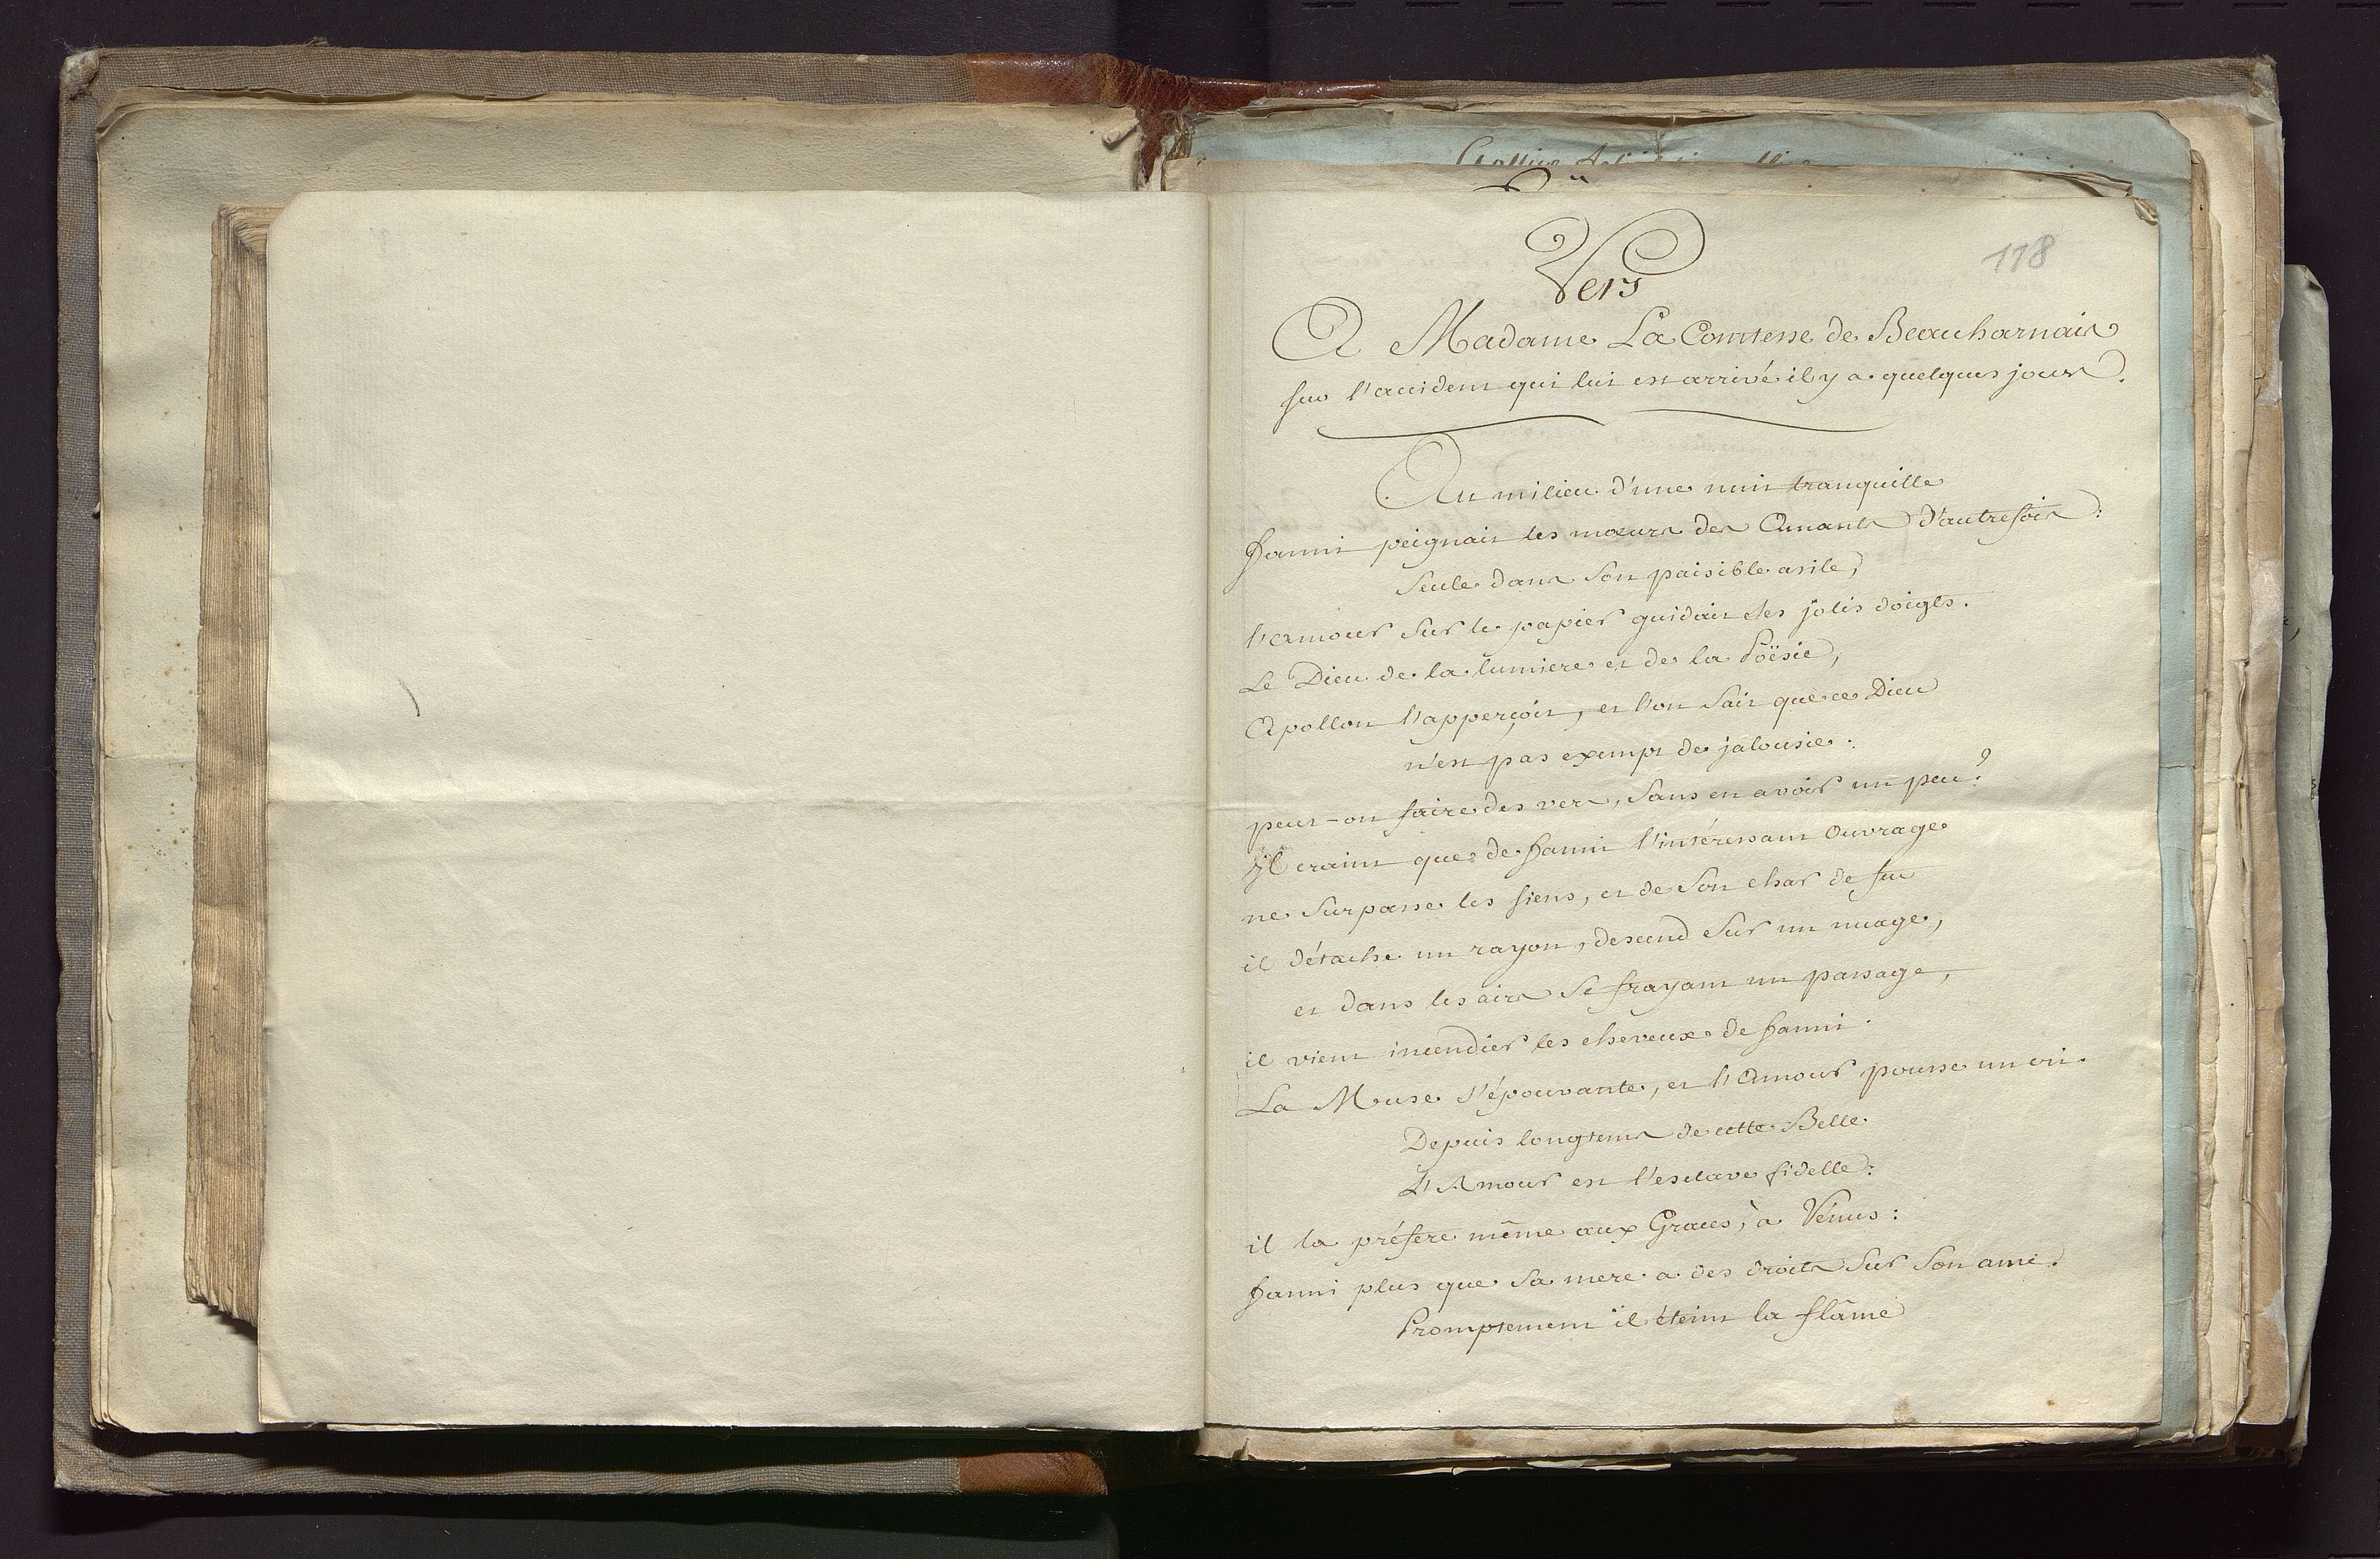 118
Vers
A Madame La Comtesse de Beauharnais
sur l'accident qui lui est arrivé il y a quelques jours.
Au milieu d'une nuit tranquille
fanni peignait les mœurs des Amants d'autrefois:
Seule dans son paisible asile,
l'amour sur le papier guidait ses jolis doigts.
Le Dieu de la lumiere et de la Poësie,
Apollon l'apperçoit, et l'on sait que ce Dieu
n'est pas exempt de jalousie:
peut-on faire des vers, sans en avoir un peu?
il craint que de fanni l'intéressant Ouvrage
ne surpasse les siens, et de son char de feu
il détache un rayon, descend sur un nuage,
et dans les airs se frayant un passage,
il vient incendier les cheveux de fanni.
La Muse s'épouvante, et l'Amour pousse un cri.
Depuis longtems de cette Belle
L'Amour est l'esclave fidelle:
il la préfere même aux Graces, à Vénus:
fanni plus que sa mere a des droits sur son ame.
Promptement il éteint la flâme